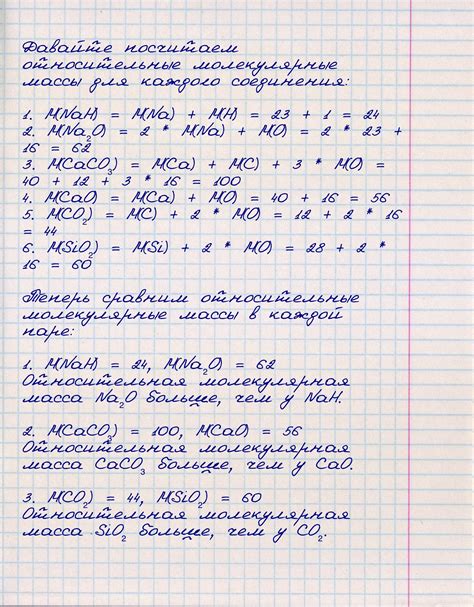 Давайте посчитаем
относительные молекулярные
массы для каждого соединения:
1. M(NaH) = M(Na) + M(H) = 23 + 1 = 24
2. M(Na₂O) = 2 * M(Na) + M(O) = 2 * 23 +
16 = 62
3. M(CaCO₃) = M(Ca) + M(C) + 3 * M(O) =
40 + 12 + 3 * 16 = 100
4. M(CaO) = M(Ca) + M(O) = 40 + 16 = 56
5. M(CO₂) = M(C) + 2 * M(O) = 12 + 2 * 16
= 44
6. M(SiO₂) = M(Si) + 2 * M(O) = 28 + 2 *
16 = 60
Теперь сравним относительные
молекулярные массы в каждой
паре:
1. M(NaH) = 24, M(Na₂O) = 62
Относительная молекулярная
масса Na₂O больше, чем у NaH.
2. M(CaCO₃) = 100, M(CaO) = 56
Относительная молекулярная
масса CaCO₃ больше, чем у CaO.
3. M(CO₂) = 44, M(SiO₂) = 60
Относительная молекулярная
масса SiO₂ больше, чем у CO₂.